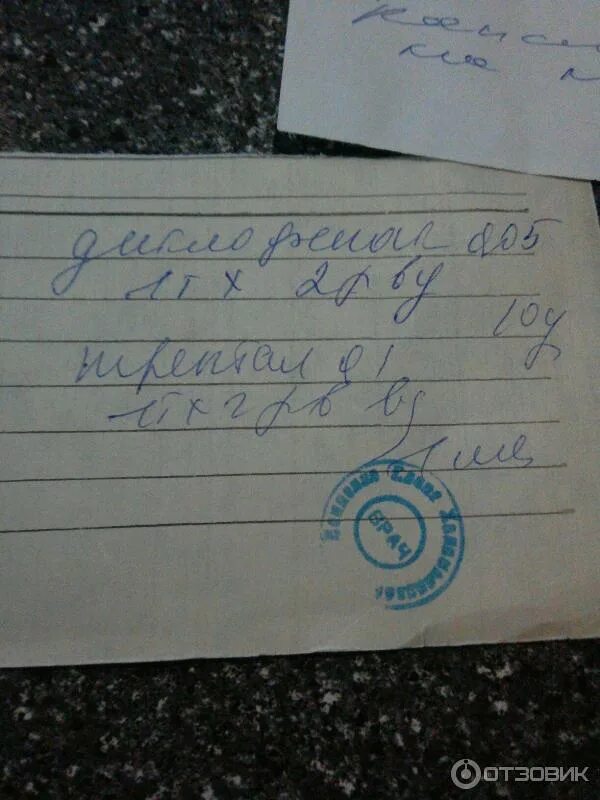 на
диклофенак 0,05
1т х 2 р в д
10 д
трентал 0,1
1т х 2 р в д
1 мес
ВРАЧ
ОТЗОВИК